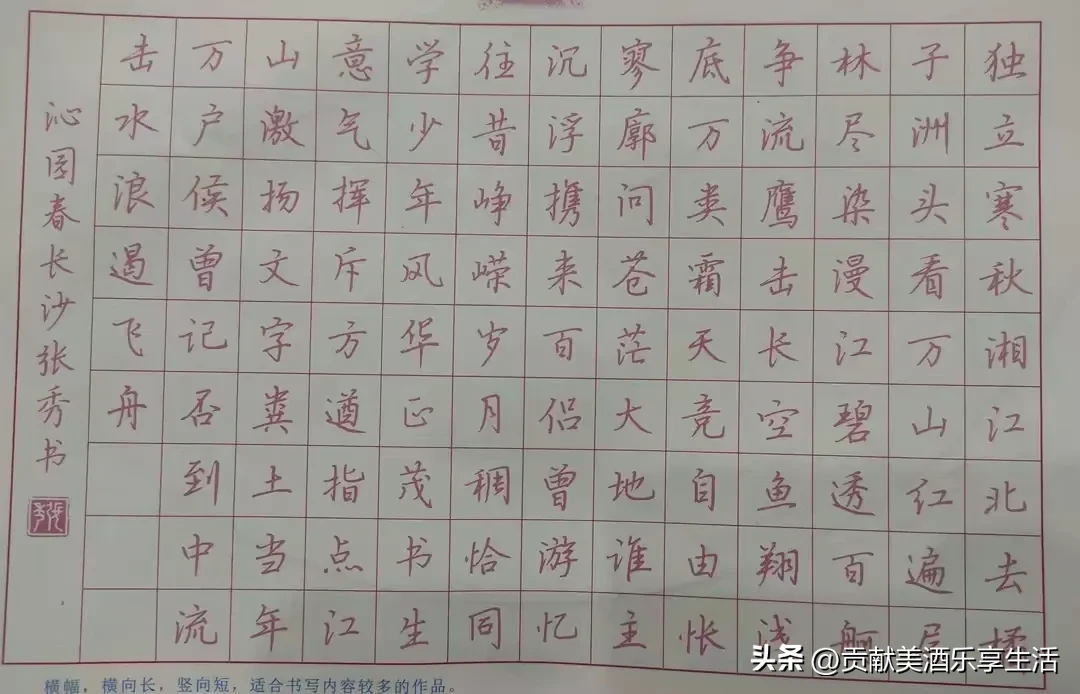 独立寒秋湘江北去橘
子洲头看万山红遍层
林尽染漫江碧透百舸
争流鹰击长空鱼翔浅
底万类霜天竞自由怅
寥廓问苍茫大地谁主
沉浮携来百侣曾游忆
往昔峥嵘岁月稠恰同
学少年风华正茂书生
意气挥斥方遒指点江
山激扬文字粪土当年
万户侯曾记否到中流
击水浪遏飞舟
沁园春长沙张秀书
横幅，横向长，竖向短，适合书写内容较多的作品。
头条 @贡献美酒乐享生活